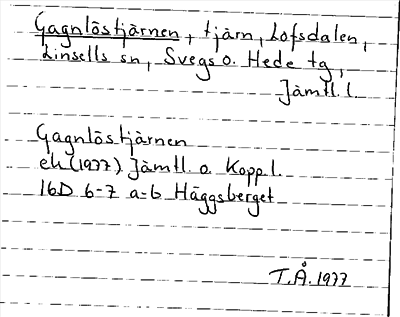 Gagnlöstjärnen, tjärn, Lofsdalen,
Linsells sn, Svegs o. Hede tg,
Jämtl. l.
Gagnlöstjärnen
ek (1977) Jämtl. o. Kopp l.
16D 6-7 a-b Häggsberget
T.Å. 1977